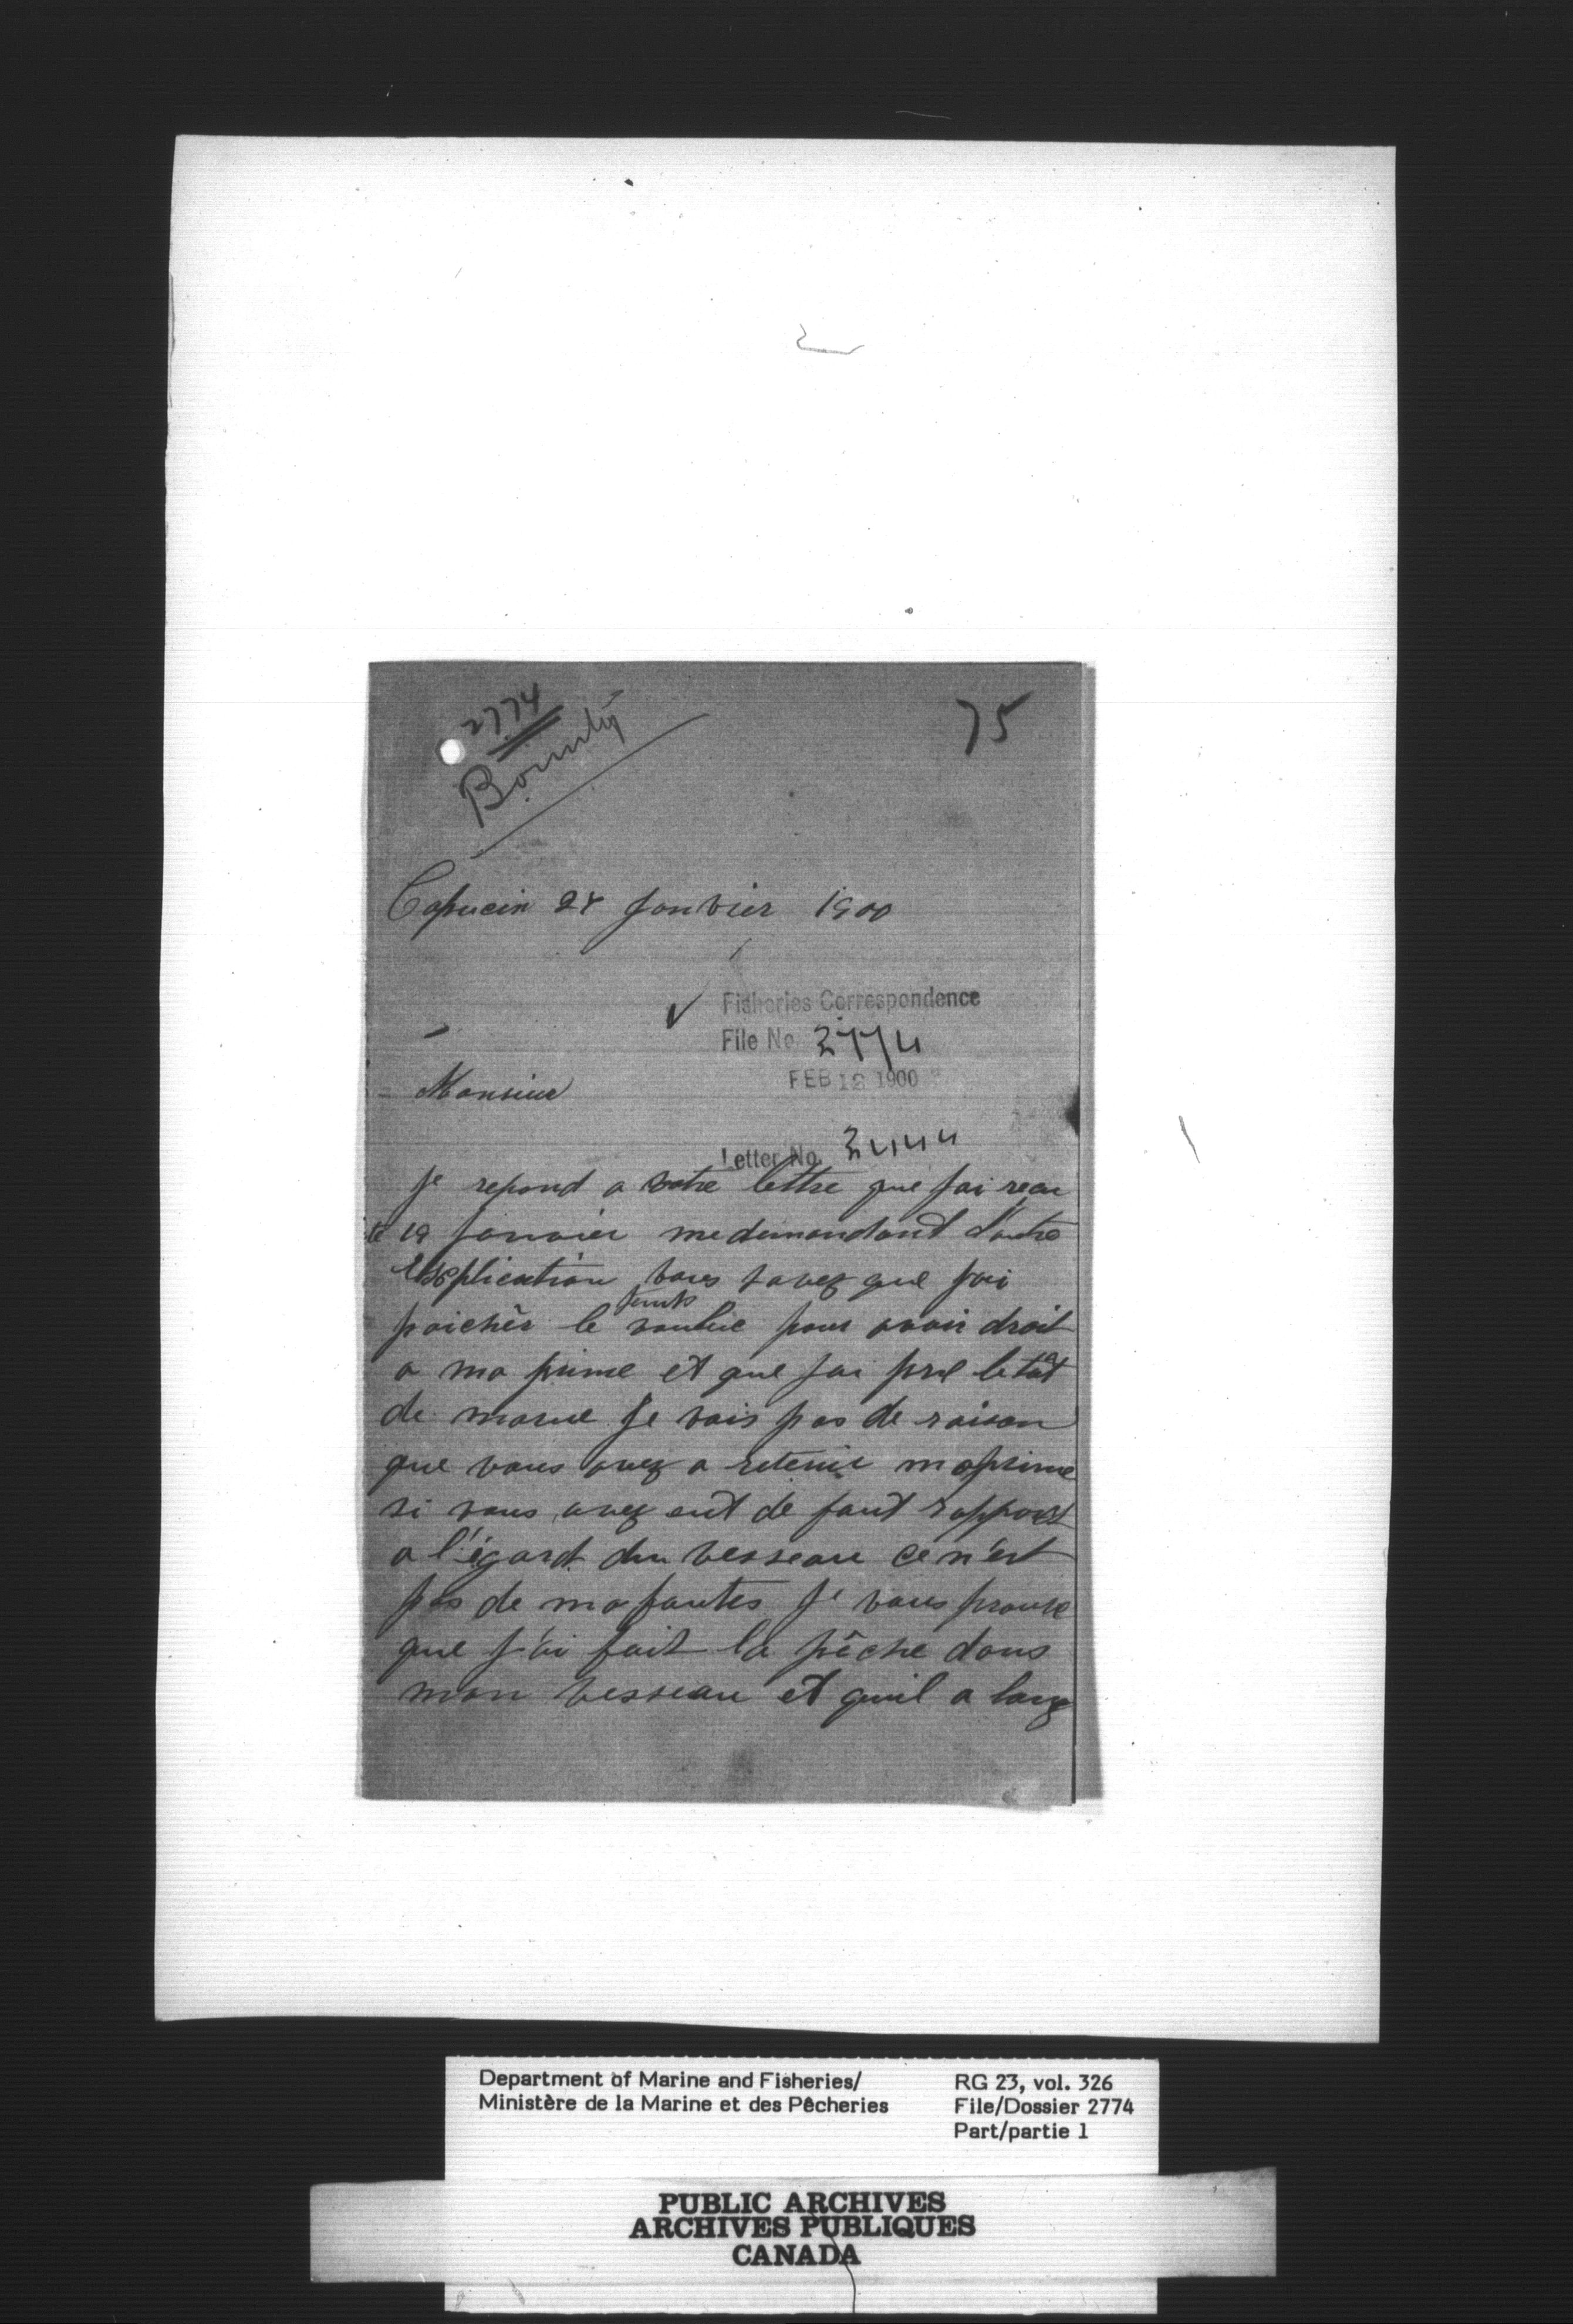 2774
Bounty
75
Capucin 28 janvier 1900
Fisheries Correspondence
File No 2774
FEB 12 1900
Monsieur
Letter No. 3444
Je repond a votre lettre que jai recu
le 19 janvier me demandant d'autre
Exsplication vous savez que jai
paichèr le temps voulue pour avoir droit
a ma prime et que jai pris
de morue Je vois pas de raison
que vous avez a retenir maprime
si vous avez eut de faut rapport
a l'égard du vesseau ce n'est
pas de ma fautes Je vous prouve
que j'ai fait la pêche dans
mon vesseau et quil a
Department of Marine and Fisheries/
Ministère de la Marine et des Pêcheries
RG 23, vol. 326
File/Dossier 2774
Part/partie 1
PUBLIC ARCHIVES
ARCHIVES PUBLIQUES
CANADA